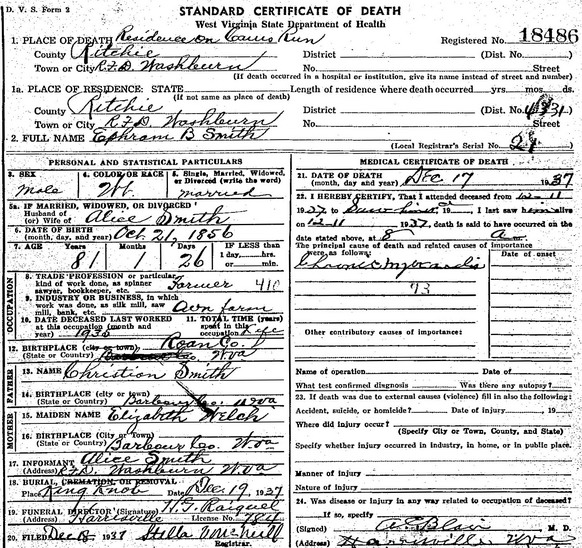 D. V. S. Form 2
STANDARD CERTIFICATE OF DEATH
West Virginia State Department of Health
1. PLACE OF DEATH Residence on Run Registered No. 18486
County Ritchie District (Dist. No.)
Town or City R.F.D. Washburn No. Street
(If death occurred in a hospital or institution, give its name instead of street and number)
1a. PLACE OF RESIDENCE: STATE Length of residence where death occurred yrs. mos. ds.
(If not same as place of death)
County Ritchie District (Dist. No. 4331)
Town or City R.F.D. Washburn No. Street
2. FULL NAME Ephram B Smith
(Local Registrar's Serial No.)
PERSONAL AND STATISTICAL PARTICULARS
3. SEX
male
4. COLOR OR RACE
Wh.
5. Single, Married, Widowed, or Divorced (write the word)
married
5a. IF MARRIED, WIDOWED, OR DIVORCED
Husband of
(or) Wife of Alice Smith
6. DATE OF BIRTH
(month, day, and year) Oct 21, 1856
7. AGE Years Months Days IF LESS than
81 1 26 1 day, hrs.
or min.
OCCUPATION
8. TRADE PROFESSION or particular
kind of work done, as spinner
sawyer, bookkeeper, etc. Farmer 410
9. INDUSTRY OR BUSINESS, in which
work was done, as silk mill, saw
mill, bank, etc. own farm
10. DATE DECEASED LAST WORKED
at this occupation (month and
year) 1936
11. TOTAL TIME (years)
spent in this
occupation Life
12. BIRTHPLACE (city or town) Roan Co.
(State or Country) Barbour Co. W.va
FATHER
13. NAME Christion Smith
14. BIRTHPLACE (City or Town)
(State or Country) Barbour Co. W va
MOTHER
15. MAIDEN NAME Elizabeth Welch
16. BIRTHPLACE (City or Town)
(State or Country) Barbour Co. W va
17. INFORMANT Alice Smith
(Address) R.F.D. Washburn W va
18. BURIAL, CREMATION, OR REMOVAL
Place King Knob Date Dec 19, 1937
19. FUNERAL DIRECTOR (Signature) H. T. Raiguel
(Address) Harrisville License No. 784
20. FILED Dec 18 1937 Stella
Registrar.
MEDICAL CERTIFICATE OF DEATH
21. DATE OF DEATH
(month, day, and year) Dec 17 1937
22. I HEREBY CERTIFY, That I attended deceased from 12-11
1937 to , I last saw him alive on
12-11 1937, death is said to have occurred on the
date stated above, at 8 a m.
The principal cause of death and related causes of importance
were as follows: Date of onset
Chronic Myocardis
93
Other contributory causes of importance:
Name of operation Date of
What test confirmed diagnosis Was there any autopsy?
23. If death was due to external causes (violence) fill in also the following:
Accident, suicide, or homicide? Date of injury 19
Where did injury occur?
(Specify City or Town, County, and State)
Specify whether injury occurred in industry, in home, or in public place.
Manner of injury
Nature of injury
24. Was disease or injury in any way related to occupation of deceased?
If so, specify
(Signed) A E Blair M. D.
(Address) Harrisville W va